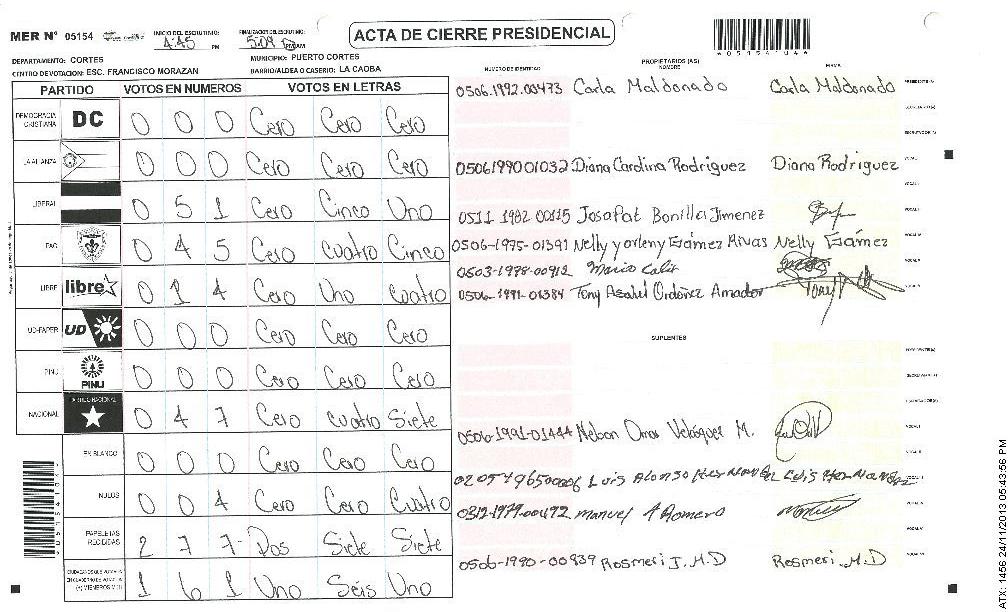 MER Nº 05154 INICIO DEL ESCRUTINIO: 4:45 PM FINALIZACION DEL ESCRUTINIO: 5:09 PM/AM
ACTA DE CIERRE PRESIDENCIAL
DEPARTAMENTO: CORTES MUNICIPIO: PUERTO CORTES
CENTRO DE VOTACION: ESC. FRANCISCO MORAZAN BARRIO/ALDEA O CASERIO: LA CAOBA
PARTIDO VOTOS EN NUMEROS VOTOS EN LETRAS
DEMOCRACIA CRISTIANA DC 0 0 0 Cero Cero Cero
LA ALIANZA 0 0 0 Cero Cero Cero
LIBERAL 0 5 1 Cero Cinco Uno
PAC 0 4 5 Cero Cuatro Cinco
LIBRE libre 0 1 4 Cero Uno Cuatro
UD-FAPER UD 0 0 0 Cero Cero Cero
PINU PINU 0 0 0 Cero Cero Cero
NACIONAL 0 4 7 Cero Cuatro Siete
EN BLANCO 0 0 0 Cero Cero Cero
NULOS 0 0 4 Cero Cero Cuatro
PAPELETAS RECIBIDAS 2 7 7 Dos Siete Siete
1 6 1 Uno Seis Uno
PROPIETARIOS (AS)
NUMERO DE IDENTIDAD NOMBRE FIRMA
0506.1992.00473 Carla Maldonado Carla Maldonado
0506199001032 Diana Carolina Rodriguez Diana Rodriguez
0511 1982 00115 Josafat Bonilla Jimenez
0506-1975-01391 Nelly Yorleny Gámez Rivas Nelly Gámez
0603-1978-00912 Mario Calix
0506-1991-01384 Tony Asahel Ordoñez Amador Tony
SUPLENTES
0506-1991-01444 Nelson Omar Velásquez M.
Luis Alonso Hernandez Luis Hernandez
0312-1979-00492 Manuel A Romero
0506-1990-00939 Rosmeri J. M.D Rosmeri .M.D
ATX: 1456 24/11/2013 05:43:56 PM